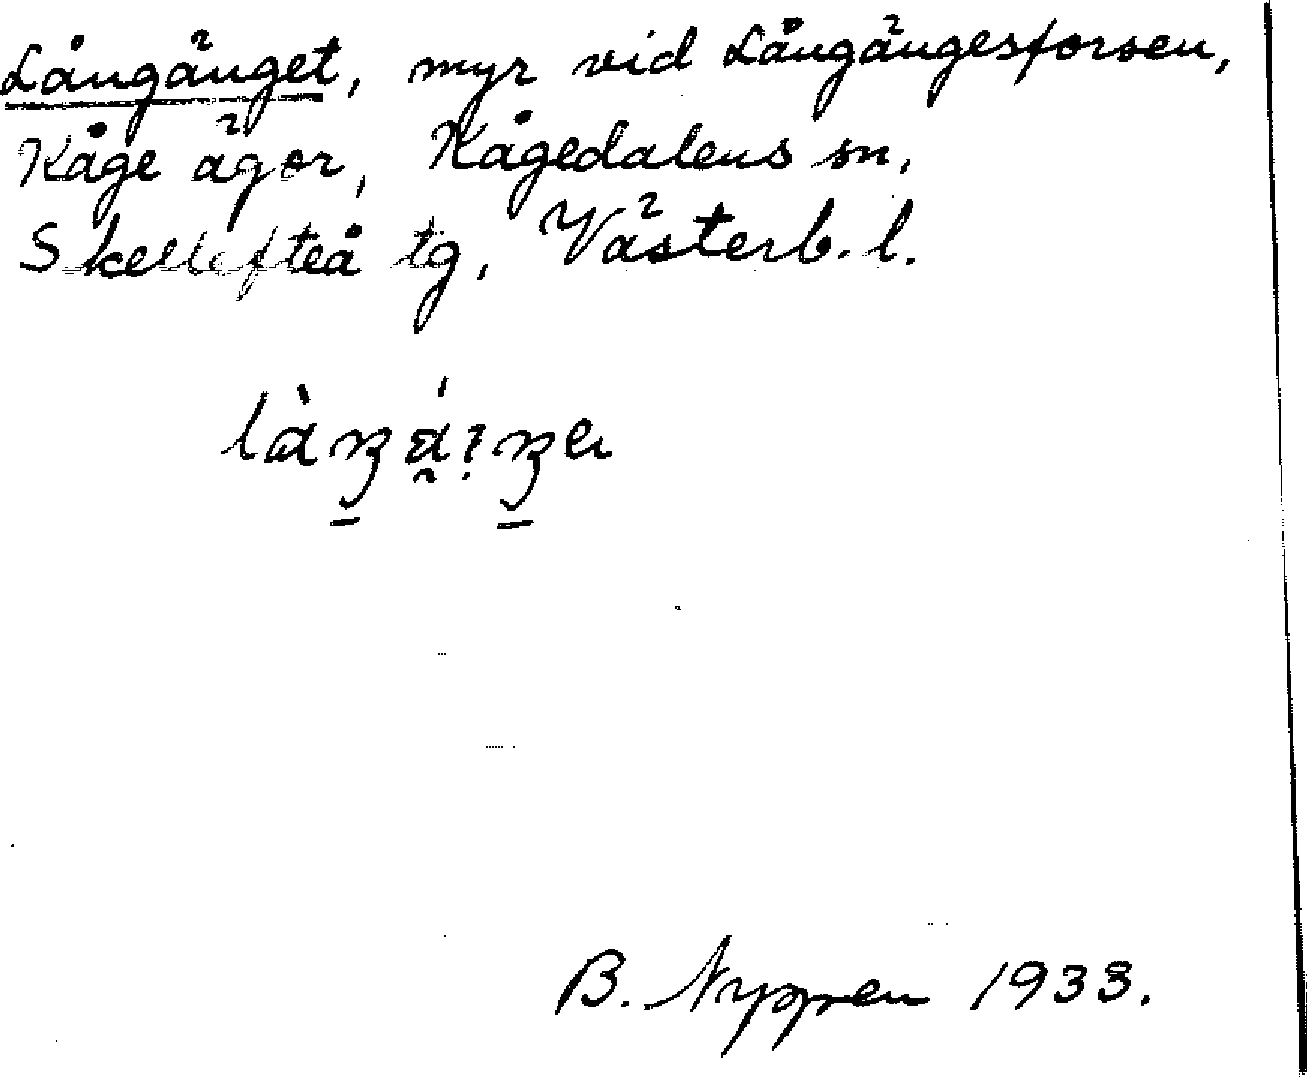 Långänget, myr vid Långängesforsen,
Kåge ägor, Kågedalens sn,
Skellefteå tg, Västerb. l.
B. Nyppren 1933.